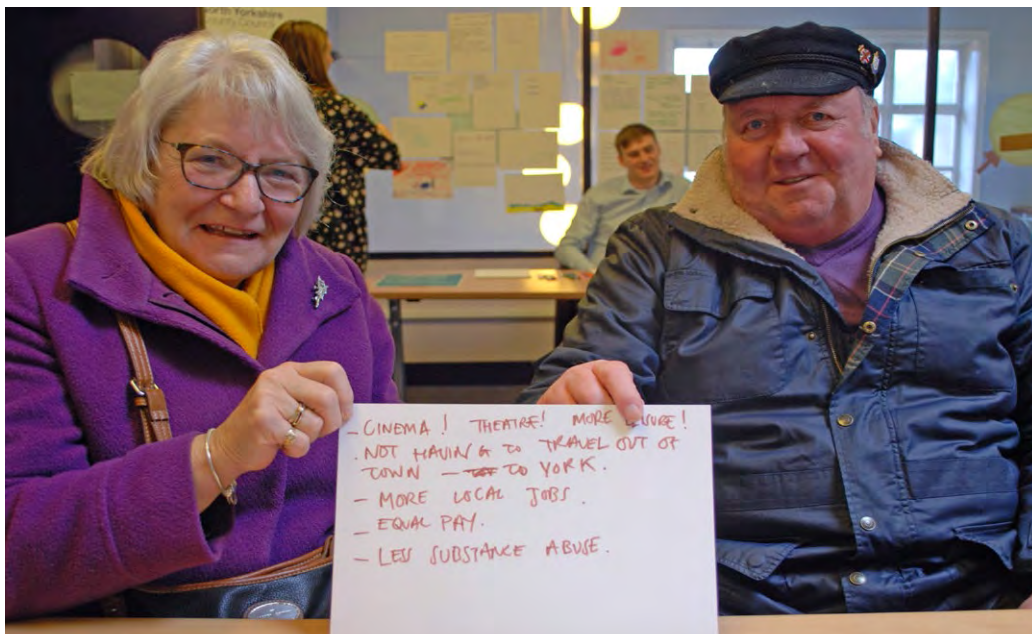 North Yorkshire
County Council
- CINEMA! THEATRE! MORE LEISURE!
. NOT HAVING TO TRAVEL OUT OF
TOWN - TO YORK.
- MORE LOCAL JOBS.
- EQUAL PAY.
- LESS SUBSTANCE ABUSE.